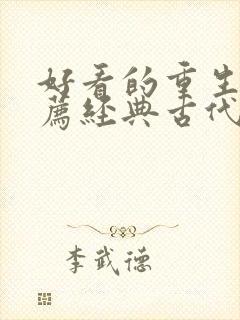 好看的重生
薦經典古代
李武德